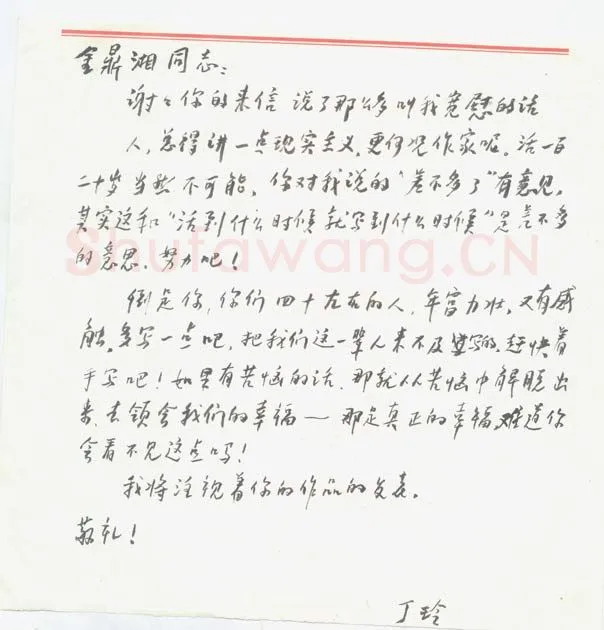 金鼎湘同志:
谢谢你的来信 说了那么多叫我宽慰的话
人,总得讲一点现实主义,更何况作家呢。活一百
二十岁当然不可能,你对我说的“差不多了”有意见,
其实这和“活到什么时候就写到什么时候”是差不多
的意思,努力吧!
Shufawang.CN
倒是你,你们四十左右的人,年富力壮,又有感
触,多写一点吧,把我们这一辈人来不及写的,赶快着
手写吧!如果有苦恼的话,那就从苦恼中解脱出
来,去领会我们的幸福—那是真正的幸福,难道你
会看不见这点吗!
我将注视着你的作品的发表。
敬礼!
丁玲